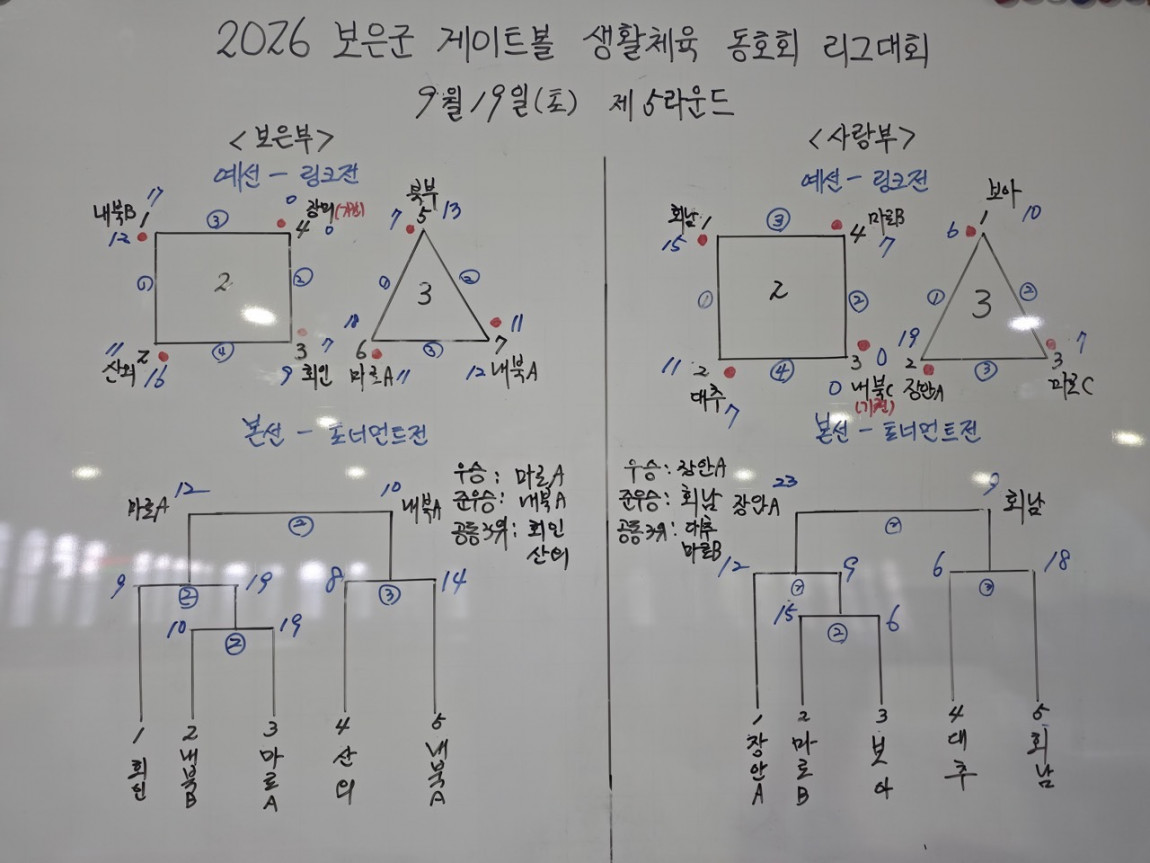 2026 보은군 게이트볼 생활체육 동호회 리그대회
9월 19일(토) 제 5라운드
<보은부>
예선 - 링크전
17
내북B 1
12
③
0
장미(기권)
4 0
2
①
②
산외 2
11
16
④
3 7
9 회인
북부
7 5 13
①
②
3
18
6
마로A 11
③
11
7
12 내북A
본선 - 토너먼트전
우승 : 마로A
준우승 : 내북A
공동3위 : 회인
산외
마로A 12
10 내북A
②
9 ② 19
8 ③ 14
10 ② 19
1 회인
2 내북B
3 마로A
4 산외
5 내북A
<사랑부>
예선 - 링크전
회남 1
15
③
4 마로B
7
①
2
②
11 2
대추 7
④
3 0
0 내북C
(기권)
보아
1 10
6
①
3
②
19
2
장안A
③
7
3
마로C
본선 - 토너먼트전
우승 : 장안A
준우승 : 회남
공동3위 : 대추
마로B
장안A 23
9 회남
②
12 ② 9
6 ③ 18
15 ② 6
1 장안A
2 마로B
3 보아
4 대추
5 회남